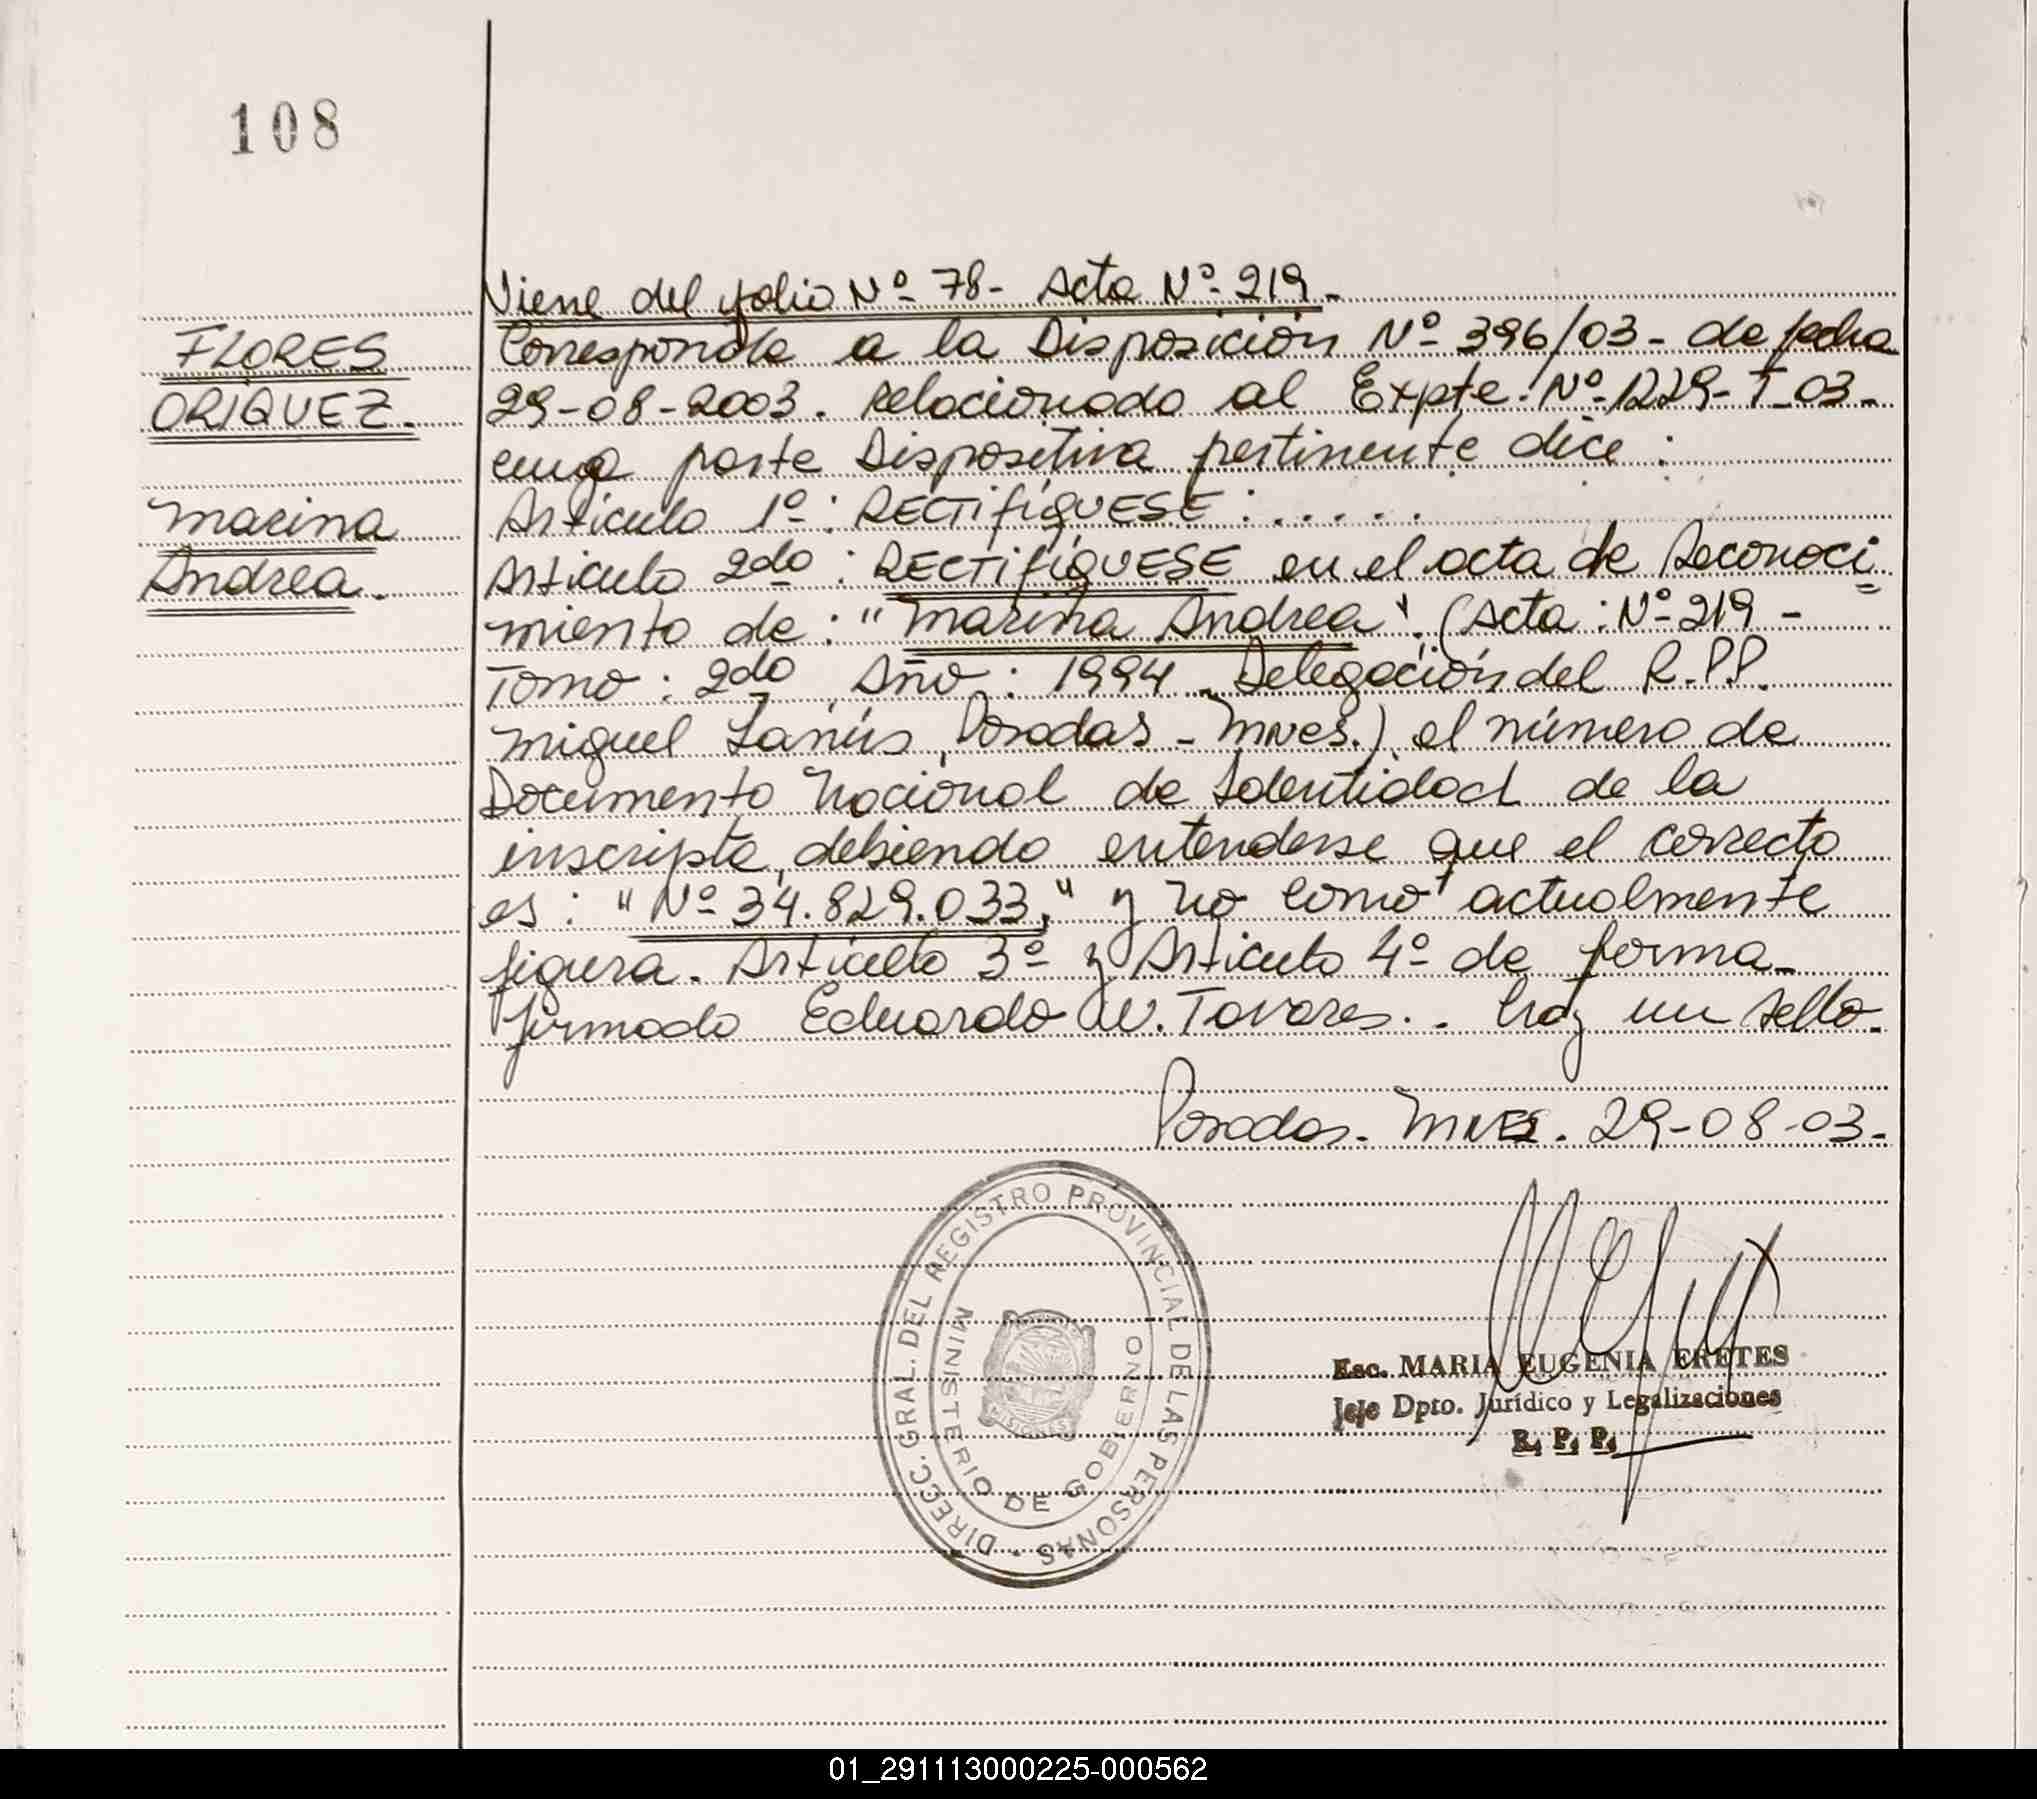 108
Viene del folio Nº 78- Acta Nº 219-
FLORES
ORIQUEZ.
Marina
Andrea.
Corresponde a la Disposición Nº 396/03- de fecha
29-08-2003. relacionado al Expte. Nº 1229-T-03-
cuya parte Dispositiva pertinente dice :
Articulo 1º : RECTIFÍQUESE : .....
Articulo 2do : RECTIFÍQUESE en el acta de Reconoci
miento de : "Marina Andrea", (Acta : Nº 219 -
Tomo : 2do, Año : 1994. Delegación del R.P.P.
Miguel Lanús, Posadas - Mnes.), el número de
Documento Nacional de Identidad de la
inscripta, debiendo entenderse que el correcto
es : "Nº 34.829.033," y no como actualmente
figura. Articulo 3º y Articulo 4º de forma-
firmado Eduardo W. Tavares.. Hay un sello.
Posadas. Mnes. 29-08-03.
DIRECC. GRAL. DEL REGISTRO PROVINCIAL DE LAS PERSONAS
MINISTERIO DE GOBIERNO
MISIONES
Esc. MARIA EUGENIA ERETES
Jefe Dpto. Jurídico y Legalizaciones
R. P. P.
01_291113000225-000562